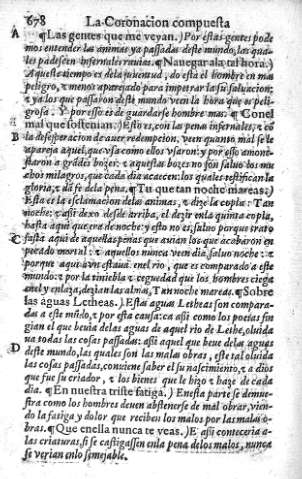 678 La Coronacion compuesta
A ¶Las gentes que me veyan.) Por estas gentes pode
mos entender las animas ya passadas deste mundo, las qua
les padescen infernales ruinas. ¶Nauegar a la tal hora.)
Aqueste tiempo es de la juuentud, do està el hombre en mas
peligro, ⁊ menos aparejado para impetrar la su saluacion:
⁊ ya los que passaron deste mundo veen la hora que es peli-
grosa. Y por esso es de guardarse hombre mas. ¶Con el
mal que sostenian.) Esto es, con las penas infernales, ⁊ cõ
B la desesperacion de auer redempcion. veen quanto mal se le
apareja aquel, que vsa como ellos vsaron: y por esso amone-
staron a grãdes bozes: ⁊ aquestas bozes no son saluo los mu
chos milagros, que cada dia acaecen: los quales testifican la
gloria, ⁊ dã fe dela pena. ¶Tu que tan noche mareas.)
Esta es la esclamacion delas animas, ⁊ dize la copla: Tan
noche: ⁊ assi dexo desde arriba, el dezir en la quinta copla,
hasta aqui que era de noche: y esto no es, saluo porque trato
C fasta aqui de aquellas penas que auian los que acabaron en
pecado mortal: ⁊ aquellos nunca veen dia, saluo noche: ⁊
porque aquí avn estaua enel rio, que es comparado a este
mundo: ⁊ por la tiniebla ⁊ ceguedad que los hombres ciega
enel y enlaza, dezian las almas, Tan noche mareas. ¶Sobre
las aguas Letheas.) Estas aguas Letheas son compara-
das a este mũdo, ⁊ por esta causa: ca assi como los poetas fin
gian el que beuia delas aguas de aquel rio de Lethe, oluida
ua todas las cosas passadas: assi aquel que beue delas aguas
D deste mundo, las quales son las malas obras, este tal oluida
las cosas passadas, conuiene saber el su nascimiento, ⁊ a dios
que fue su criador, ⁊ los bienes que le hizo ⁊ haze de cada
dia. ¶En nuestra triste fatiga.) En esta parte se demue-
stra como los hombres deuen abstenerse de mal obrar, vien-
do la fatiga y dolor que reciben los malos por las malas o-
bras. ¶Que en ella nunca te veas.) E assi conteceria a
las criaturas, si se castigassen en la pena delos malos, nunca
se verian enlo semejable.